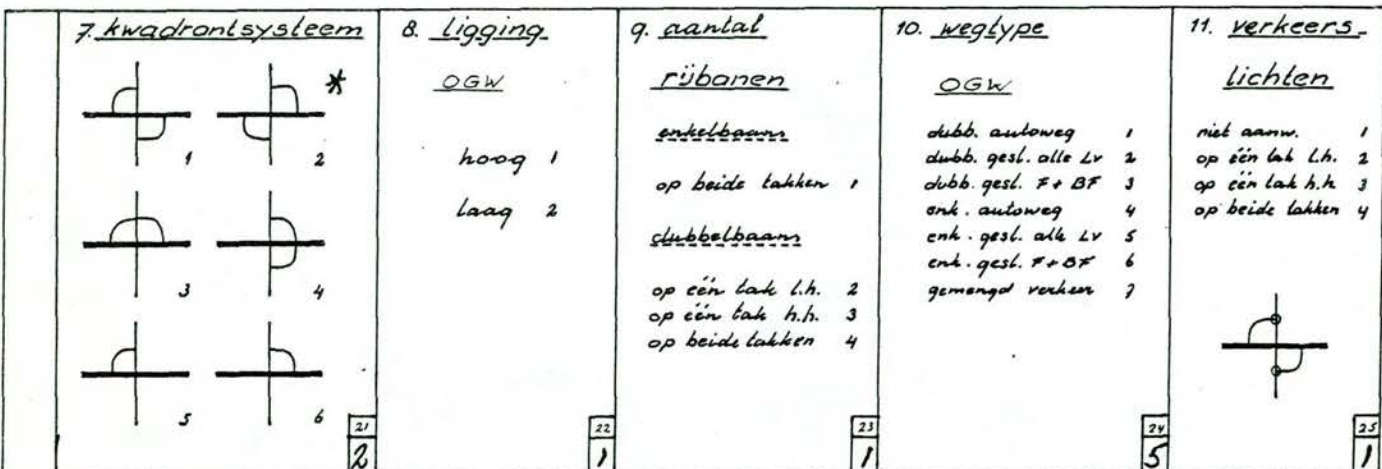 7. kwadrantsysteem
*
1
2
3
4
5
6
21
2
8. ligging
OGW
hoog 1
laag 2
22
1
9. aantal
rijbanen
enkelbaans
op beide takken 1
dubbelbaans
op één tak l.h. 2
op één tak h.h. 3
op beide takken 4
23
1
10. wegtype
OGW
dubb. autoweg 1
dubb. gesl. alle Lv 2
dubb. gesl. F + BF 3
enk. autoweg 4
enk. gesl. alle Lv 5
enk. gesl. F + BF 6
gemengd verkeer 7
24
5
11. verkeers-
lichten
niet aanw. 1
op één tak l.h. 2
op één tak h.h 3
op beide takken 4
25
1